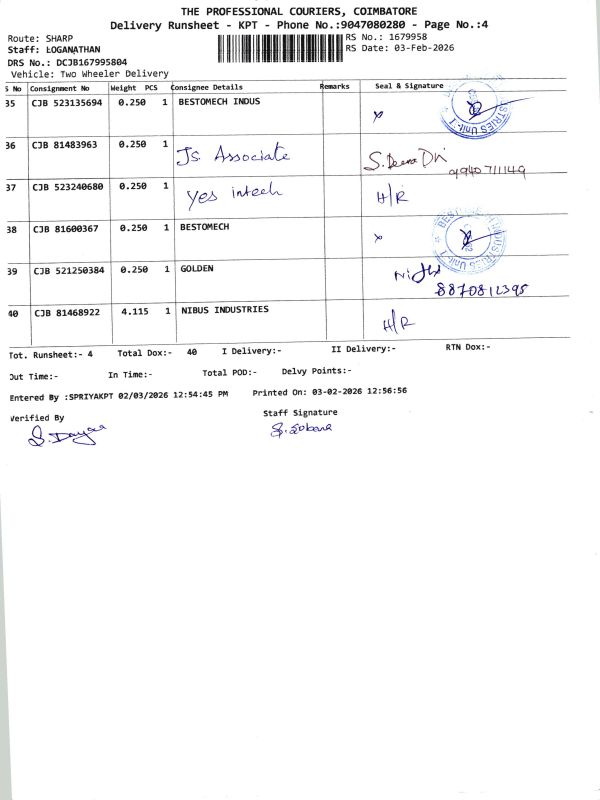 THE PROFESSIONAL COURIERS, COIMBATORE
Delivery Runsheet - KPT - Phone No.:9047080280 - Page No.:4
Route: SHARP
RS No.: 1679958
Staff: LOGANATHAN
RS Date: 03-Feb-2026
DRS No.: DCJB167995804
Vehicle: Two Wheeler Delivery
S No Consignment No Weight PCS Consignee Details Remarks Seal & Signature
35 CJB 523135694 0.250 1 BESTOMECH INDUS
STRIES Unit-1
36 CJB 81483963 0.250 1 Js. Associate S. Deena
37 CJB 523240680 0.250 1 Yes intech H/R
38 CJB 81600367 0.250 1 BESTOMECH
39 CJB 521250384 0.250 1 GOLDEN
8870812395
40 CJB 81468922 4.115 1 NIBUS INDUSTRIES H/R
Tot. Runsheet:- 4 Total Dox:- 40 I Delivery:- II Delivery:- RTN Dox:-
Out Time:- In Time:- Total POD:- Delvy Points:-
Entered By :SPRIYAKPT 02/03/2026 12:54:45 PM Printed On: 03-02-2026 12:56:56
Verified By Staff Signature